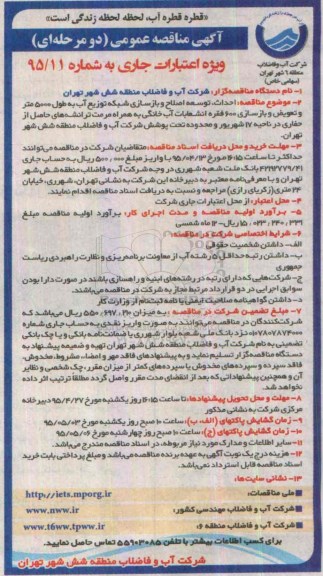 «قطره قطره آب، لحظه لحظه زندگی است»
آگهی مناقصه عمومی (دو مرحله‌ای)
ویژه اعتبارات جاری به شماره ۹۵/۱۱
شرکت آب وفاضلاب
منطقه ۶ شهر تهران
(سهامی خاص)
۱- نام دستگاه مناقصه‌گزار: شرکت آب و فاضلاب منطقه شش شهر تهران
۲- موضوع مناقصه: احداث، توسعه اصلاح و بازسازی شبکه توزیع آب به طول ۵۰۰۰ متر
و تعویض و بازسازی ۶۰۰ فقره انشعابات آب خانگی به همراه مرمت ترانشه‌های حاصل از
حفاری در ناحیه ۱۷ شهریور و محدوده تحت پوشش شرکت آب و فاضلاب منطقه شش شهر
تهران.
۳- مهلت خرید و محل دریافت اسناد مناقصه: متقاضیان شرکت در مناقصه می‌توانند
حداکثر تا ساعت ۱۶:۱۵ مورخ ۹۵/۰۴/۱۳ با واریز مبلغ ۵۰۰,۰۰۰ ریال به حساب جاری
بانک ملت شعبه شهرری در وجه شرکت آب و فاضلاب منطقه شش شهر
تهران و با معرفی‌نامه معتبر به دبیرخانه این شرکت به نشانی تهران، شهرری، خیابان
۲۴ متری (زکریای رازی) مراجعه و نسبت به دریافت اسناد مناقصه اقدام نمایند.
۴- محل اعتبار: از محل اعتبارات جاری شرکت
۵- برآورد اولیه مناقصه و مدت اجرای کار: برآورد اولیه مناقصه مبلغ
ریال- ۱۲ ماه شمسی
۶- شرایط اختصاصی شرکت در مناقصه:
الف- داشتن شخصیت حقوقی
ب- داشتن رتبه حداقل ۵ رشته آب از معاونت برنامه‌ریزی و نظارت راهبردی ریاست
جمهوری
ج- شرکت‌هایی که دارای رتبه در رشته‌های ابنیه و راهسازی باشند در صورت دارا بودن
سوابق اجرایی در دو قرارداد مرتبط مجاز به شرکت در مناقصه می‌باشند.
د- داشتن گواهینامه صلاحیت ایمنی یا نامه ثبت‌نام از وزارت کار
۷- مبلغ تضمین شرکت در مناقصه: به میزان ۵۵۰,۶۹۷,۲۱۰ ریال می‌باشد که
شرکت‌کنندگان در مناقصه می‌توانند به صورت واریز نقدی به حساب جاری شماره
نزد بانک ملی شعبه بلوار شهرری یا ضمانت‌نامه بانکی و یا چک بانکی
تضمینی به نام شرکت آب و فاضلاب منطقه شش شهر تهران تهیه و ضمیمه پیشنهاد به
دستگاه مناقصه‌گزار تسلیم نماید و به پیشنهادهای فاقد مهر و امضاء، مشروط، مخدوش و
فاقد سپرده و سپرده‌های مخدوش یا سپرده‌های کمتر از میزان مقرر، چک شخصی و نظایر
آن و همچنین پیشنهاداتی که بعد از انقضای مدت مقرر واصل گردد مطلقاً ترتیب اثر داده
نخواهد شد.
۸- مهلت و محل تحویل پیشنهادها: تا ساعت ۱۶:۱۵ روز یکشنبه مورخ ۹۵/۴/۲۷ دبیرخانه
مرکزی شرکت به نشانی مذکور
۹- زمان گشایش پاکتهای (الف، ب): ساعت ۱۰ صبح روز یکشنبه مورخ ۹۵/۰۵/۰۳
۱۰- زمان گشایش پاکتهای (ج): ساعت ۱۰ صبح روز چهارشنبه مورخ ۹۵/۰۵/۰۶
۱۱- سایر اطلاعات و مدارک مورد نیاز مربوطه، در اسناد مناقصه مندرج می‌باشد.
۱۲- هزینه درج یک نوبت آگهی به عهده برنده مناقصه می‌باشد و مبلغ پرداختی بابت خرید
اسناد مناقصه قابل استرداد نمی‌باشد.
۱۳- نشانی سایت‌ها:
ملی مناقصات: http://iets.mporg.ir
شرکت آب و فاضلاب مهندسی کشور: www.nww.ir
شرکت آب و فاضلاب منطقه ۶: www.t6ww.tpww.ir
برای کسب اطلاعات بیشتر با تلفن ۵۵۹۰۳۰۸۵ تماس حاصل نمایید.
شرکت آب و فاضلاب منطقه شش شهر تهران